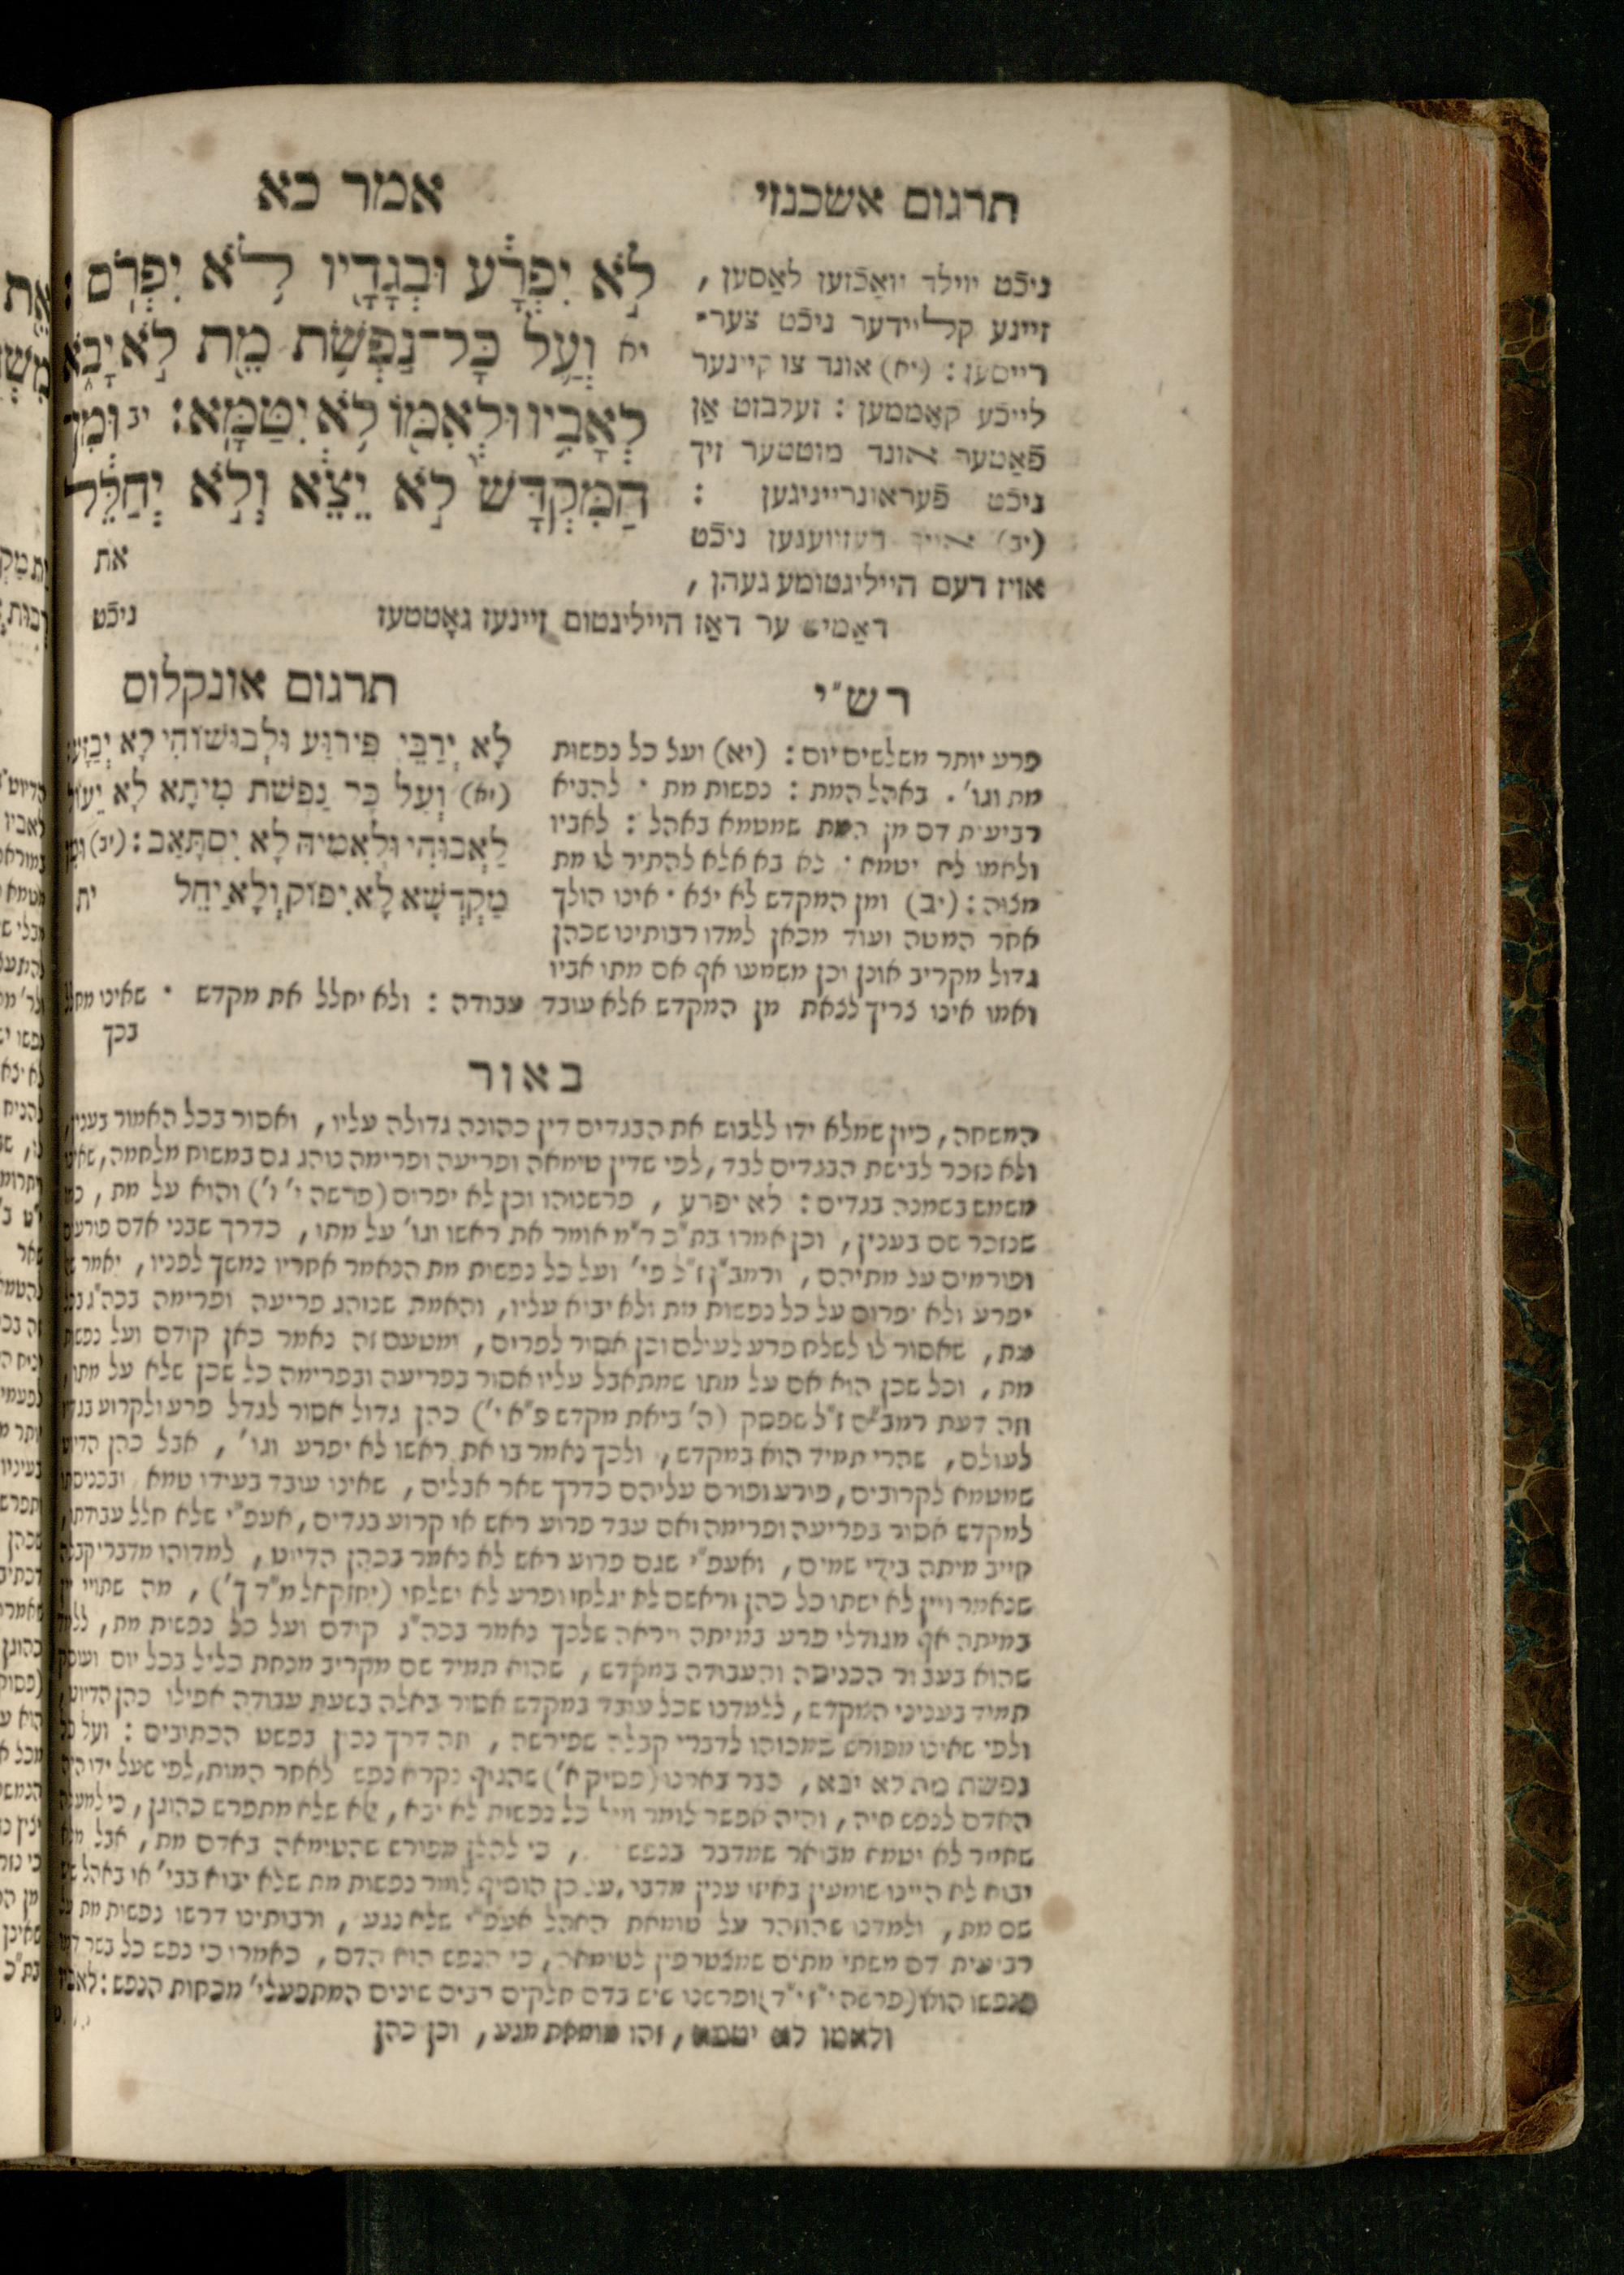 תרגום אשכנזי
אמר כא
ניכֿט ווילד וואַכֿזען לאַסען,
זיינע קליידער ניכֿט צער־
רייסען: (יא) אונד צו קיינער
לייכֿע קאָממען: זעלבזט אַן
פֿאַטער אונד מוטטער זיך
ניכֿט פֿעראונרייניגען :
(יב) אויך דעזוועגען ניכֿט
אויז דעם הייליגטומע געהן,
דאַמיט ער דאַז הייליגטום זיינעז גאָטטעז
ניכֿט
לֹ֣א יִפְרָ֔ע וּבְגָדָ֖יו לֹ֥א יִפְרֹֽם׃
יא וְעַ֛ל כָּל־נַפְשֹׁ֥ת מֵ֖ת לֹ֣א יָבֹ֑א
לְאָבִ֥יו וּלְאִמּ֖וֹ לֹ֥א יִטַּמָּֽא׃ יב וּמִן
הַמִּקְדָּשׁ֙ לֹ֣א יֵצֵ֔א וְלֹ֣א יְחַלֵּ֔ל
את
רש״י
פרע יותר משלשים יום: (יא) ועל כל נפשות
מת וגו'. באהל המת: נפשות מת · להביא
רביעית דם מן המת שמטמא באהל: לאביו
ולאמו לא יטמא · לא בא אלא להתיר לו מת
מצוה: (יב) ומן המקדש לא יצא · אינו הולך
אחר המטה ועוד מכאן למדו רבותינו שכהן
גדול מקריב אונן וכן משמעו אף אם מתו אביו
ואמו אינו צריך לצאת מן המקדש אלא עובד עבודה: ולא יחלל את מקדש · שאינו מחלל
בכך
תרגום אונקלוס
לָא יְרַבֵּי פֵּירוּעַ וּלְבוּשׁוֹהִי לָא יְבַזָּע:
(יא) וְעַל כָּל נַפְשַׁת מִיתָא לָא יֵעוֹל
לַאֲבוּהִי וּלְאִמֵּיהּ לָא יִסְתָּאַב: (יב) וּמִן
מַקְדְּשָׁא לָא יִפּוֹק וְלָא יַחֵל
ית
באור
המשחה, כיון שמלא ידו ללבוש את הבגדים דין כהונה גדולה עליו, ואסור בכל האמור בענין,
ולא נזכר לבישת הבגדים לבד, לפי שדין טומאה ופריעה ופרימה נוהג גם במשוח מלחמה, שאינו
משמש בשמנה בגדים: לא יפרע, פרשנוהו וכן לא יפרום (פרשה י' ו') והוא על מת, כמו
שנזכר שם בענין, וכן אמרו בת״כ ר״מ אומר את ראשו וגו' על מתו, כדרך שבני אדם פורעים
ופורמים על מתיהם, ורמב״ן ז״ל פי' ועל כל נפשות מת הנאמר אחריו נמשך לפניו, יאמר לא
יפרע ולא יפרום על כל נפשות מת ולא יבוא עליו, והאמת שנוהג פריעה ופרימה בכה״ג בכל
עת, שאסור לו לשלח פרע לעולם וכן אסור לפרום, ומטעם זה נאמר כאן קודם ועל נפשת
מת, וכל שכן הוא אם על מתו שמתאבל עליו אסור בפריעה ובפרימה כל שכן שלא על מתו,
וזה דעת רמב״ם ז״ל שפסק (ה' ביאת מקדש פ״א י') כהן גדול אסור לגדל פרע ולקרוע בגדיו
לעולם, שהרי תמיד הוא במקדש, ולכך נאמר בו את ראשו לא יפרע וגו', אבל כהן הדיוט
שמטמא לקרובים, פורע ופורם עליהם כדרך שאר אבלים, שאינו עובד בעודו טמא ובכניסתו
למקדש אסור בפריעה ופרימה ואם עבד פרוע ראש או קרוע בגדים, אעפ״י שלא חלל עבודתו,
חייב מיתה בידי שמים, ואעפ״י שגם פרוע ראש לא נאמר בכהן הדיוט, למדוהו מדברי קבלה
שנאמר ויין לא ישתו כל כהן וראשם לא יגלחו ופרע לא ישלחו (יחזקאל מ״ד ך'), מה שתויי יין
במיתה אף מגודלי פרע במיתה ויראה שלכך נאמר בכה״ג קודם ועל כל נפשות מת, ללמד
שהוא בעבור הכניסה והעבודה במקדש, שהוא תמיד שם מקריב מנחת כליל בכל יום ועוסק
תמיד בעניני המקדש, ללמדנו שכל עובד במקדש אסור באלה בשעת עבודה אפילו כהן הדיוט,
ולפי שאינו מפורש סמכוהו לדברי קבלה שפירשה, וזה דרך נכון בפשט הכתובים: ועל כל
נפשת מת לא יבא, כבר בארנו (פסוק א') שהגוף נקרא נפש לאחר המות, לפי שעל ידו היה
האדם לנפש חיה, והיה אפשר לומר ועל כל נפשות לא יבא, אלא שלא מתפרש כהוגן, כי למעלה
שאמר לא יטמא מבואר שמדבר בנפש , כי להלן מפורש שהטומאה באדם מת, אבל
יבוא לא היינו שומעין באיזו ענין מדבר, על כן הוסיף לומר נפשות מת שלא יבוא בבי' או באהל שיש
שם מת, ולמדנו שהוזהר על טומאת האהל אעפ״י שלא נגע, ורבותינו דרשו נפשות מת על
רביעית דם משתי מתים שמצטרפין לטומאה, כי הנפש הוא הדם, כאמרו כי נפש כל בשר דמו
בנפשו הוא (פרשה י״ז י״ד) ופרשנו שיש בדם חלקים רבים שונים המתפעלי' מכחות הנפש: לאביו
ולאמו לא יטמא, זהו טומאת מגע, וכן כהן